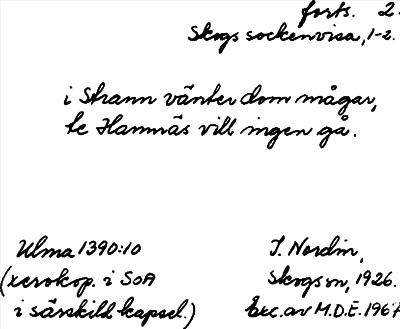 forts. 2.
Skogs sockenvisa, 1-2.
i Strann vänter dom mågar,
te Hamnäs vill ingen gå.
Ulma 1390:10
(xerokop. i SoA
i särskild kapsel.)
J. Nordin,
Skogs sn, 1926.
Exc. av M.D.E. 1967